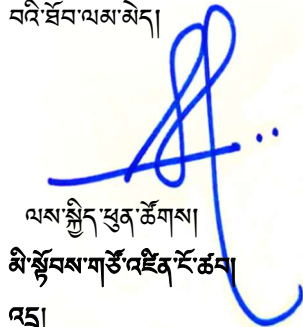 བའི་ཐོབ་ལམ་མེད།
ལས་སྐྱིད་ཕུན་ཚོགས།
མི་སྟོབས་གཙོ་འཛིན་ངོ་ཚབ།
འདྲ།